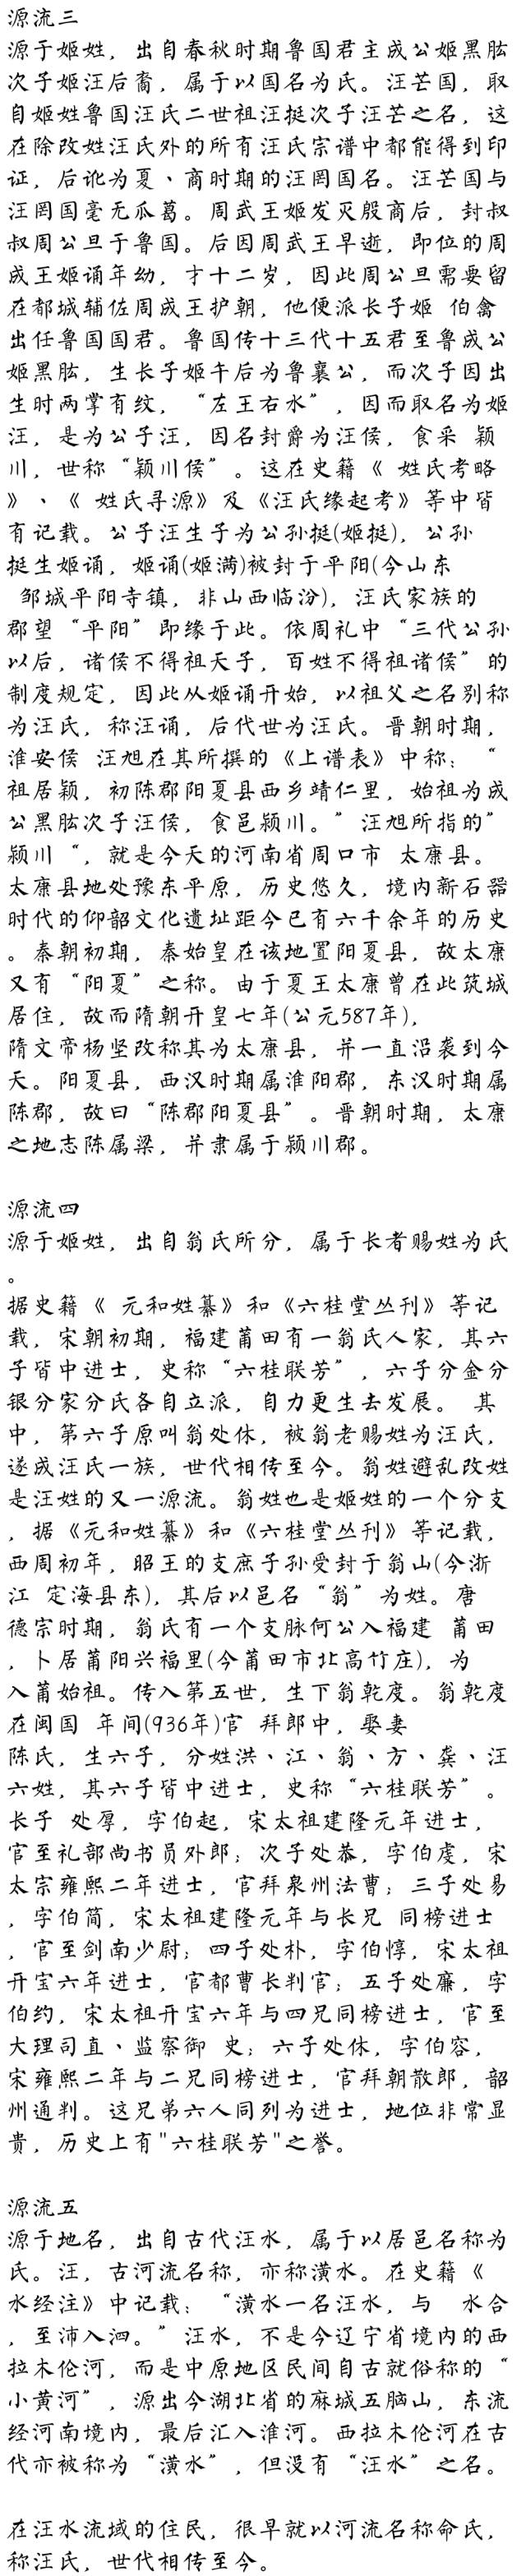 源流三
源于姬姓，出自春秋时期鲁国君主成公姬黑肱
次子姬汪后裔，属于以国名为氏。汪芒国，取
自姬姓鲁国汪氏二世祖汪挺次子汪芒之名，这
在除改姓汪氏外的所有汪氏宗谱中都能得到印
证，后讹为夏、商时期的汪罔国名。汪芒国与
汪罔国毫无瓜葛。周武王姬发灭殷商后，封叔
叔周公旦于鲁国。后因周武王早逝，即位的周
成王姬诵年幼，才十二岁，因此周公旦需要留
在都城辅佐周成王护朝，他便派长子姬 伯禽
出任鲁国国君。鲁国传十三代十五君至鲁成公
姬黑肱，生长子姬午后为鲁襄公，而次子因出
生时两掌有纹，“左王右水”，因而取名为姬
汪，是为公子汪，因名封爵为汪侯，食采 颍
川，世称“颖川侯”。这在史籍《 姓氏考略
》、《 姓氏寻源》及《汪氏缘起考》等中皆
有记载。公子汪生子为公孙挺(姬挺)，公孙
挺生姬诵，姬诵(姬满)被封于平阳(今山东
邹城平阳寺镇，非山西临汾)，汪氏家族的
郡望“平阳”即缘于此。依周礼中“三代公孙
以后，诸侯不得祖天子，百姓不得祖诸侯”的
制度规定，因此从姬诵开始，以祖父之名别称
为汪氏，称汪诵，后代世为汪氏。晋朝时期，
淮安侯 汪旭在其所撰的《上谱表》中称：“
祖居颍，初陈郡阳夏县西乡靖仁里，始祖为成
公黑肱次子汪侯，食邑颍川。”汪旭所指的”
颍川“，就是今天的河南省周口市 太康县。
太康县地处豫东平原，历史悠久，境内新石器
时代的仰韶文化遗址距今已有六千余年的历史
。秦朝初期，秦始皇在该地置阳夏县，故太康
又有“阳夏”之称。由于夏王太康曾在此筑城
居住，故而隋朝开皇七年(公元587年)，
隋文帝杨坚改称其为太康县，并一直沿袭到今
天。阳夏县，西汉时期属淮阳郡，东汉时期属
陈郡，故曰“陈郡阳夏县”。晋朝时期，太康
之地志陈属梁，并隶属于颍川郡。

源流四
源于姬姓，出自翁氏所分，属于长者赐姓为氏
。
据史籍《 元和姓纂》和《六桂堂丛刊》等记
载，宋朝初期，福建莆田有一翁氏人家，其六
子皆中进士，史称“六桂联芳”，六子分金分
银分家分氏各自立派，自力更生去发展。 其
中，第六子原叫翁处休，被翁老赐姓为汪氏，
遂成汪氏一族，世代相传至今。翁姓避乱改姓
是汪姓的又一源流。翁姓也是姬姓的一个分支
，据《元和姓纂》和《六桂堂丛刊》等记载，
西周初年，昭王的支庶子孙受封于翁山(今浙
江 定海县东)，其后以邑名“翁”为姓。唐
德宗时期，翁氏有一个支脉何公入福建 莆田
，卜居莆阳兴福里(今莆田市北高竹庄)，为
入莆始祖。传入第五世，生下翁乾度。翁乾度
在闽国 年间(936年)官 拜郎中，娶妻
陈氏，生六子，分姓洪、江、翁、方、龚、汪
六姓，其六子皆中进士，史称“六桂联芳”。
长子 处厚，字伯起，宋太祖建隆元年进士，
官至礼部尚书员外郎；次子处恭，字伯虔，宋
太宗雍熙二年进士，官拜泉州法曹；三子处易
，字伯简，宋太祖建隆元年与长兄 同榜进士
，官至剑南少尉；四子处朴，字伯惇，宋太祖
开宝六年进士，官都曹长判官；五子处廉，字
伯约，宋太祖开宝六年与四兄同榜进士，官至
大理司直、监察御 史；六子处休，字伯容，
宋雍熙二年与二兄同榜进士，官拜朝散郎，韶
州通判。这兄弟六人同列为进士，地位非常显
贵，历史上有"六桂联芳"之誉。

源流五
源于地名，出自古代汪水，属于以居邑名称为
氏。汪，古河流名称，亦称潢水。在史籍《
水经注》中记载：“潢水一名汪水，与 水合
，至沛入泗。” 汪水，不是今辽宁省境内的西
拉木伦河，而是中原地区民间自古就俗称的“
小黄河”，源出今湖北省的麻城五脑山，东流
经河南境内，最后汇入淮河。西拉木伦河在古
代亦被称为“潢水”，但没有“汪水”之名。

在汪水流域的住民，很早就以河流名称命氏，
称汪氏，世代相传至今。